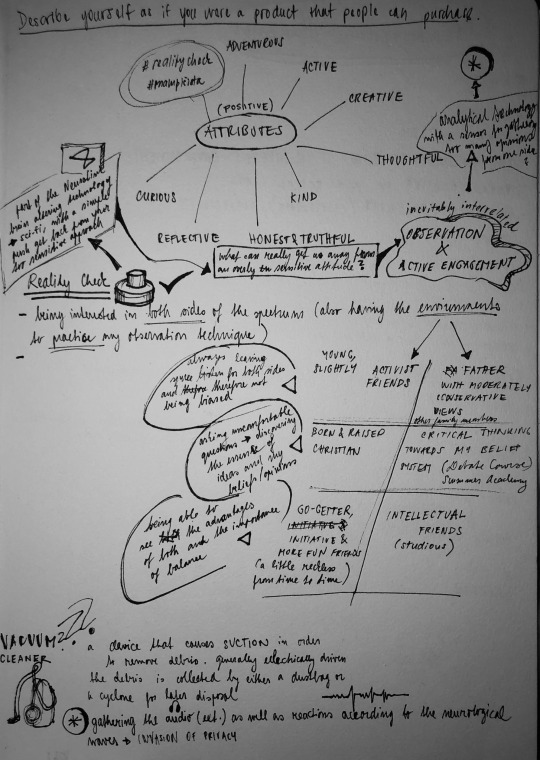 Describe yourself as if you were a product that people can purchase.
# reality check
ADVENTUROUS
ACTIVE
CREATIVE
THOUGHTFUL
(POSITIVE)
ATTRIBUTES
CURIOUS
REFLECTIVE
HONEST & TRUTHFUL
KIND
analytical technology
with a sensor for gathering
too many opinions
from one side
part of the
brain altering technology
→ sci-fi with a simple
push get back from your
too sensitive approach
what can really get me away from
an overly sensitive attitude?
inevitably interrelated
OBSERVATION
X
ACTIVE ENGAGEMENT
Reality Check
- being interested in both sides of the spectrums (also having the environments
to practice my observation technique)
-
always leaving
space for both sides
and therefore not
being biased
YOUNG,
SLIGHTLY ACTIVIST
FRIENDS
FATHER
WITH MODERATELY
CONSERVATIVE
VIEWS
other family members
asking uncomfortable
questions → discovering
the essence of
ideas and my
beliefs/opinions
BORN & RAISED
CHRISTIAN
CRITICAL THINKING
TOWARDS MY BELIEF
SYSTEM (Debate Course)
Summer Academy
being able to
see the advantages
of both and the importance
of balance
GO-GETTER,
INITIATIVE &
INITIATIVE &
MORE FUN FRIENDS
(a little reckless
from time to time)
INTELLECTUAL
FRIENDS
(studious)
VACUUM
CLEANER
a device that causes SUCTION in order
to remove debris. generally electrically driven
the debris is collected by either a dustbag or
a cyclone for later disposal
gathering the audio (ect.) as well as reactions according to the neurological
waves → INVASION OF PRIVACY